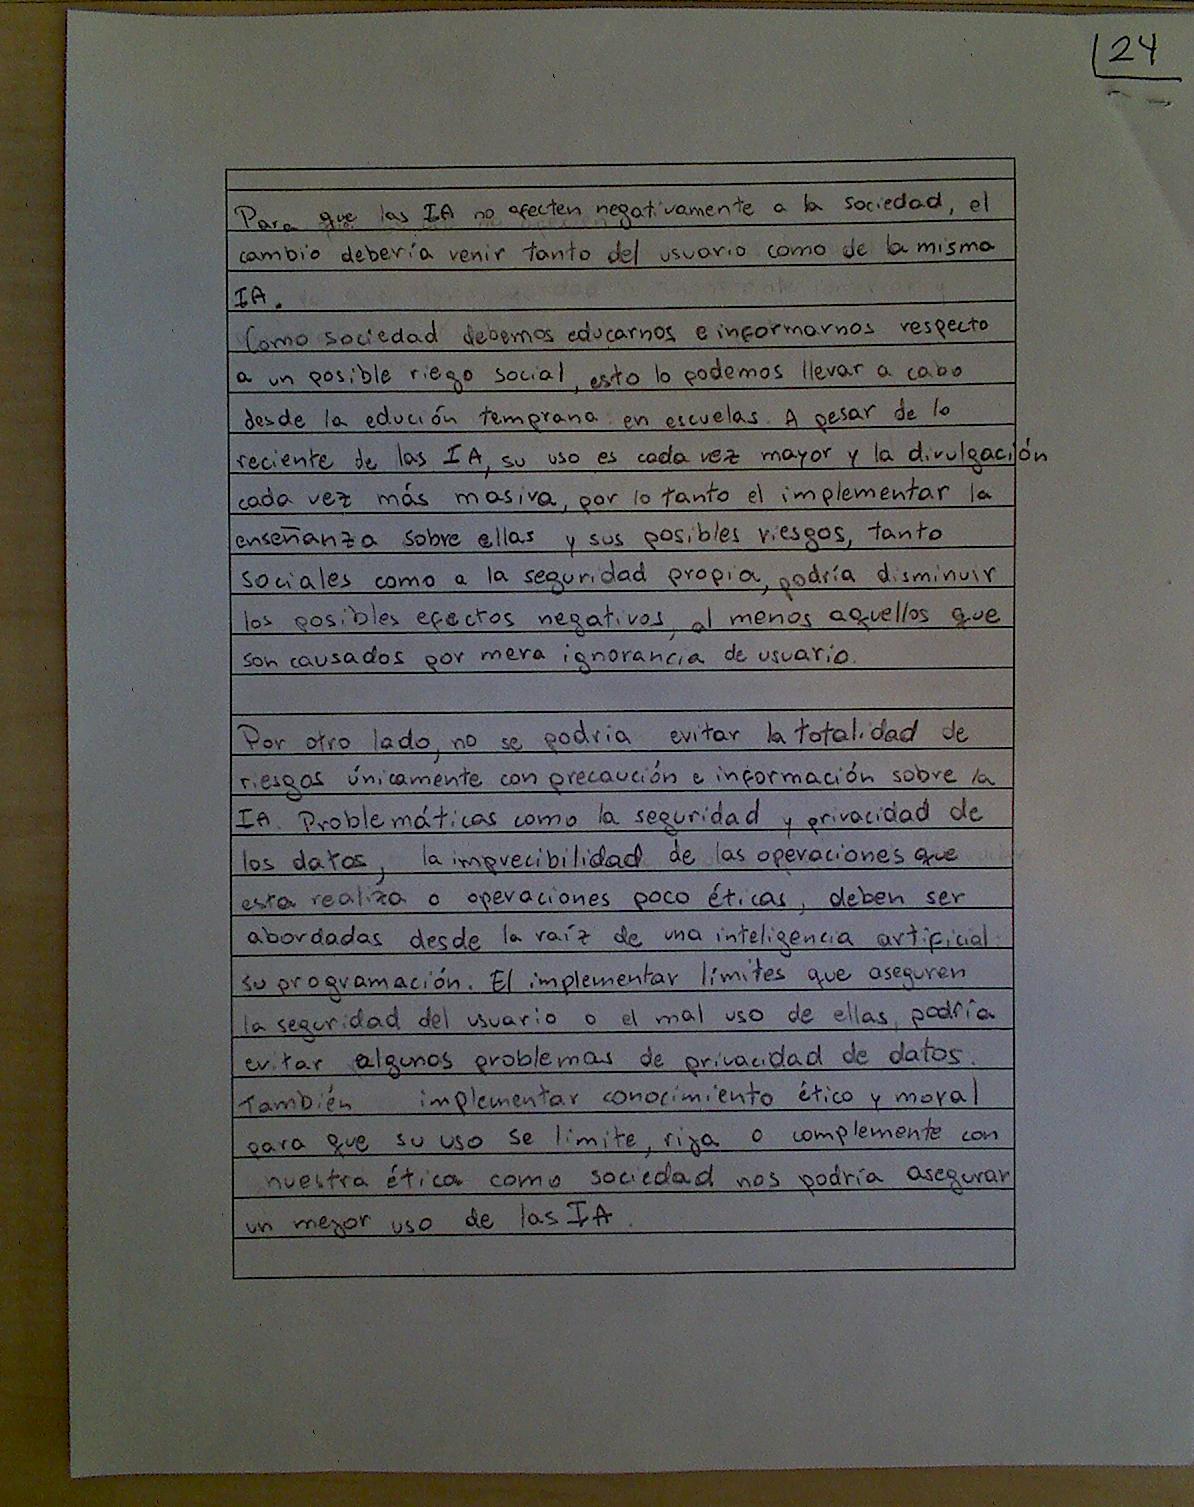 24
Para que las IA no afecten negativamente a la sociedad, el
cambio debería venir tanto del usuario como de la misma
IA.
Como sociedad debemos educarnos e informarnos respecto
a un posible riego social, esto lo podemos llevar a cabo
desde la edución temprana en escuelas. A pesar de lo
reciente de las IA, su uso es cada vez mayor y la divulgación
cada vez más masiva, por lo tanto el implementar la
enseñanza sobre ellas y sus posibles riesgos, tanto
sociales como a la seguridad propia, podría disminuir
los posibles efectos negativos, al menos aquellos que
son causados por mera ignorancia de usuario.
Por otro lado, no se podría evitar la totalidad de
riesgos únicamente con precaución e información sobre la
IA. Problemáticas como la seguridad y privacidad de
los datos, la imprecibilidad de las operaciones que
esta realiza o operaciones poco éticas, deben ser
abordadas desde la raíz de una inteligencia artificial:
su programación. El implementar límites que aseguren
la seguridad del usuario o el mal uso de ellas, podría
evitar algunos problemas de privacidad de datos.
También implementar conocimiento ético y moral
para que su uso se limite, rija o complemente con
nuestra ética como sociedad nos podría asegurar
un mejor uso de las IA.